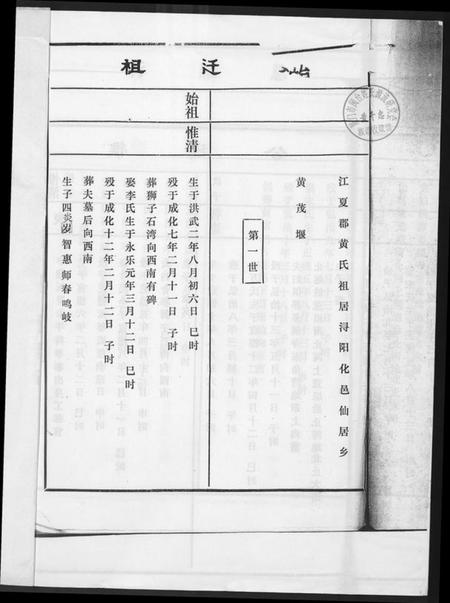 迁 祖
江夏郡黄氏祖居浔阳化邑仙居乡
黄茂堰
第一世
始祖 惟清
生于洪武二年八月初六日 巳时
殁于成化七年二月十一日 子时
葬狮子石湾向西南有碑
娶李氏生于永乐元年三月十二日 巳时
殁于成化十二年二月十二日 子时
葬夫墓后向西南
生子四 智惠 师春鸣岐